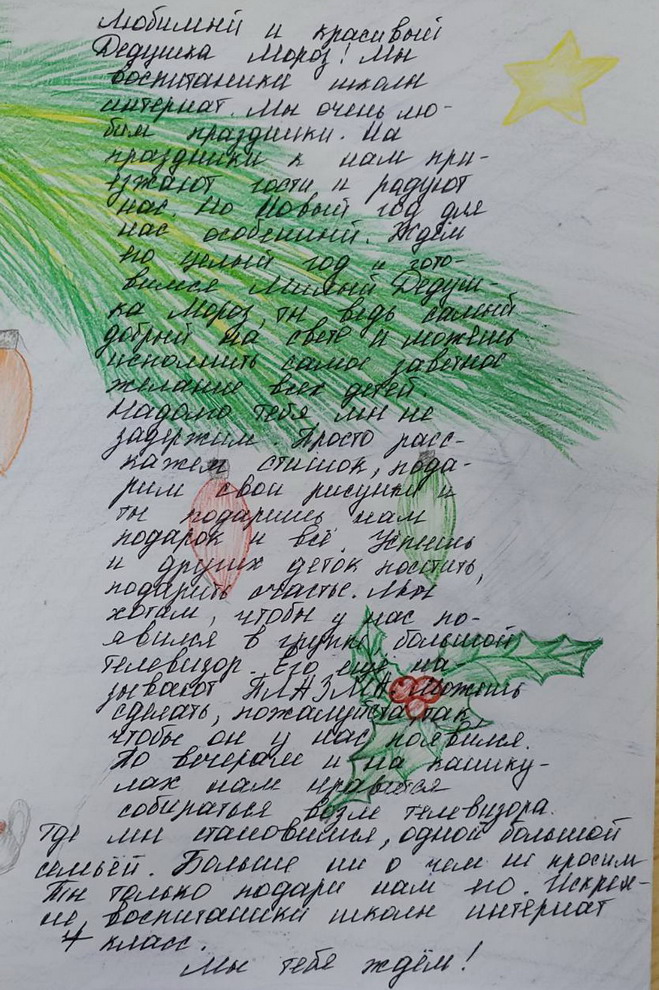 Любимый и красивый
Дедушка Мороз! Мы
воспитаники школы
интернат. Мы очень лю-
бим праздники. На
праздники к нам при-
езжают гости и радуют
нас. Но Новый год для
нас особенный. Ждём
его целый год и гото-
вимся. Милый Дедуш-
ка Мороз, ты ведь самый
добрый на свете и можешь
исполнить самое заветное
желание всех детей.
Надолго тебя мы не
задержим. Просто расс-
кажем стишок, пода-
рим свои рисунки и
ты подаришь нам
подарок и всё. Успеешь
и других деток посетить,
подарить счастье. Мы
хотим, чтобы у нас по-
явился в группе большой
телевизор. Его ещё на-
зывают ПЛАЗМА. Можешь
сделать, пожалуйста, так,
чтобы он у нас появился.
По вечерам и на канику-
лах нам нравится
собираться возле телевизора.
Где мы становимся, одной большой
семьёй. Больше ни о чём не просим
Ты только подари нам его. Искрен-
не, воспитаники школы интернат
4 класс.
Мы тебя ждём!